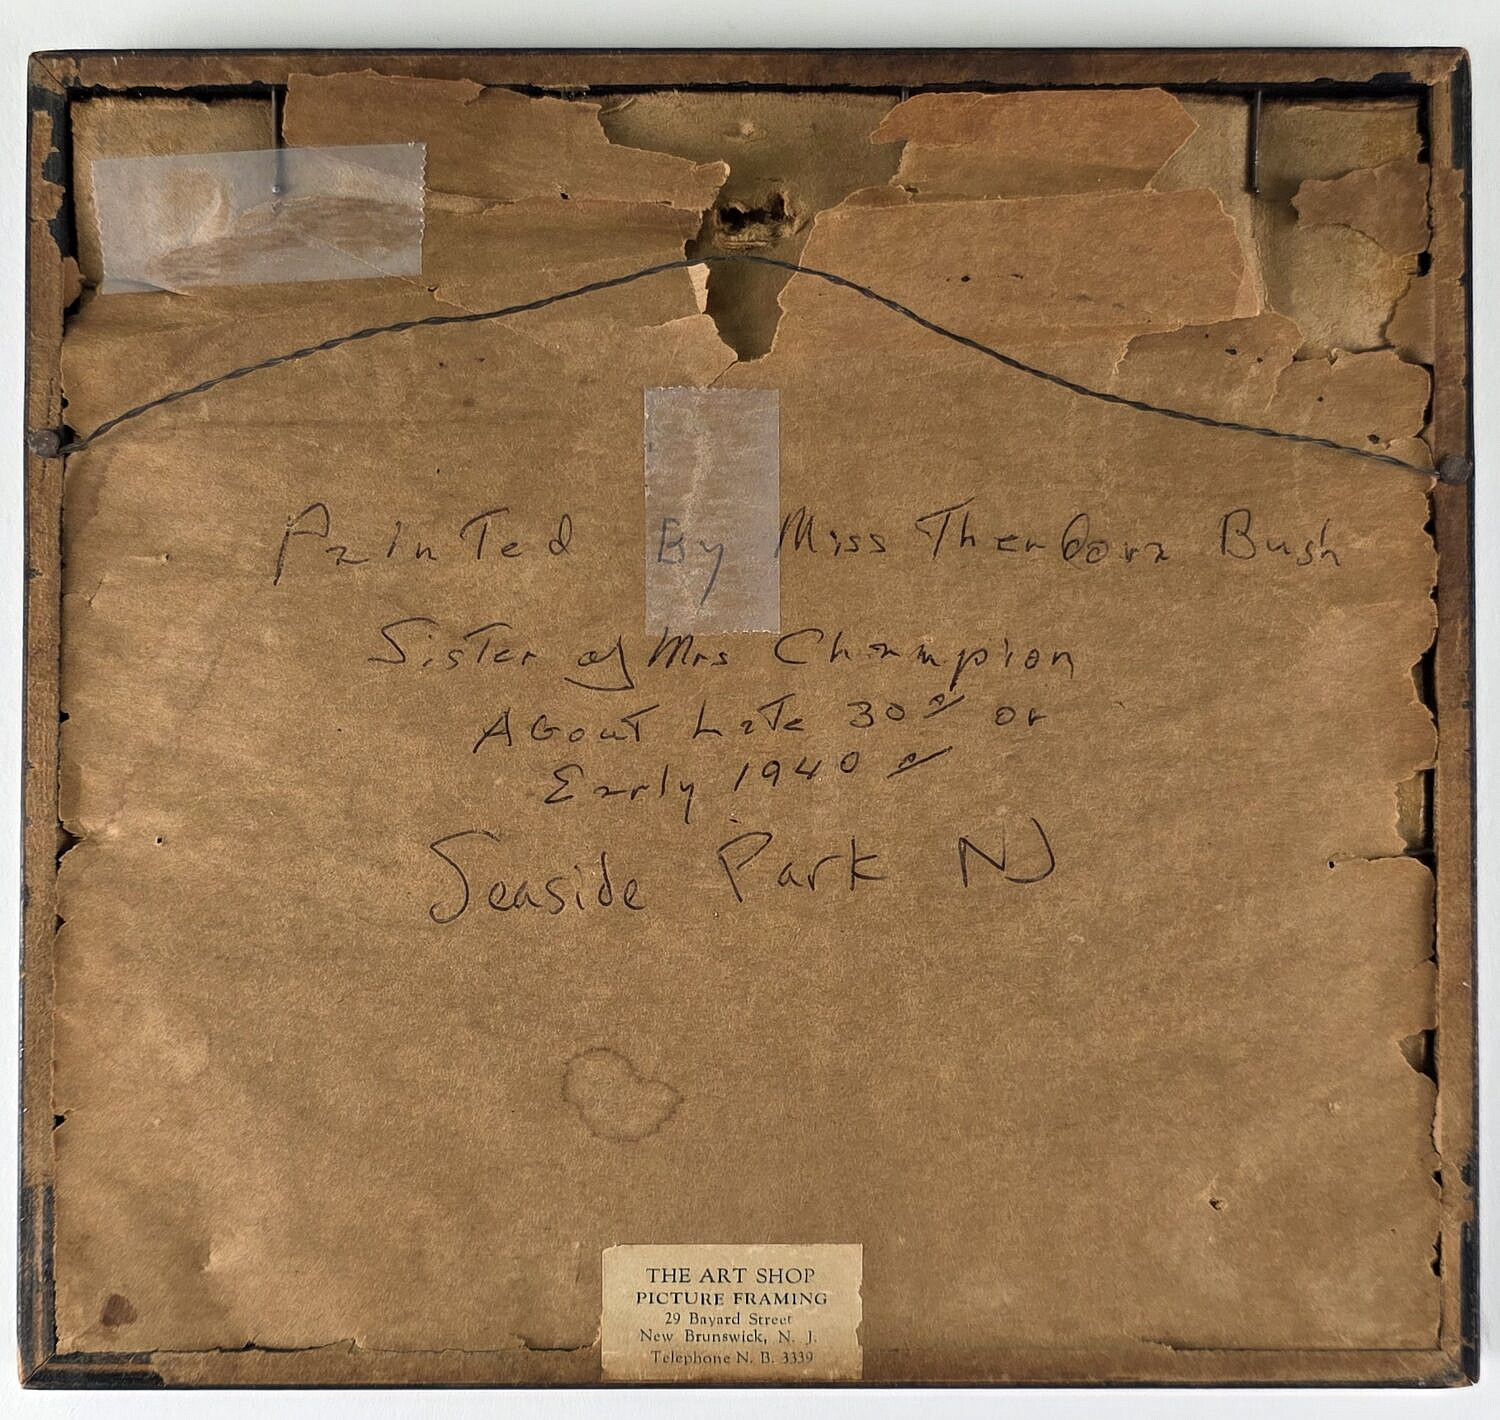 Painted By Miss Theodora Bush
Sister of Mrs Champion
About Late 30s or
Early 1940s
Seaside Park NJ
THE ART SHOP
PICTURE FRAMING
29 Bayard Street
New Brunswick, N. J.
Telephone N. B. 3339